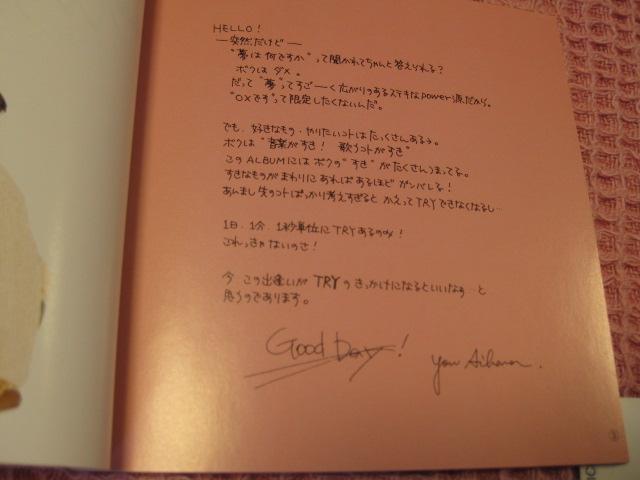 HELLO!
—突然だけど—
"夢は何ですか"って聞かれてちゃんと答えられる?
ボクはダメ。
だって"夢"ってすご——く広がりのあるステキなpower源だから。
"○×です"って限定したくないんだ。
でも、好きなもの・やりたいコトはたっくさんあるよ。
ボクは"音楽がすき! 歌うコトがすき"
このALBUMにはボクの"すき"がたくさんつまってる。
すきなものがまわりにあればあるほどガンバレる!
あんまし先のコトばっかり考えすぎると かえってTRYできなくなるし…
1日、1分、1秒単位にTRYあるのみ!
これっきゃないのさ!
今 この出逢いが TRYのきっかけになるといいなぁ…と
思うのであります。
Good Day!
You Aihara.